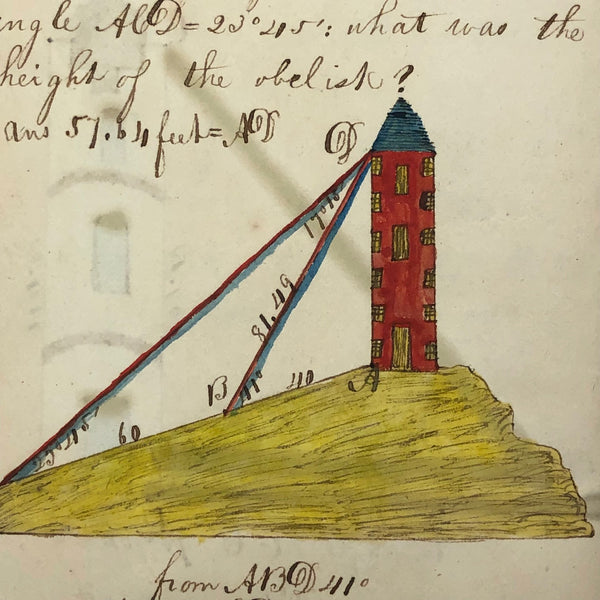 ngle ACD = 23° 45': what was the
height of the obelisk?
ans 57.64 feet = AD
D
17° 15'
81.49
B
41°
40
A
60
23° 45'
from ABD 41°